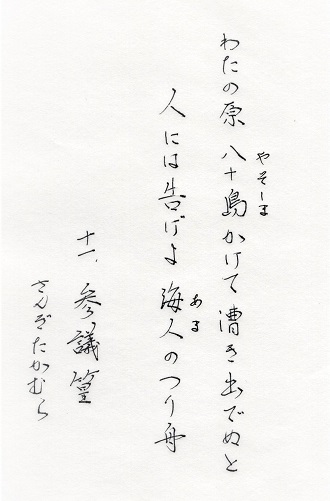 わたの原 八十島かけて 漕き出でぬと
やそしま
人には告げよ 海人のつり舟
あま
十一、参議篁
さんぎたかむら